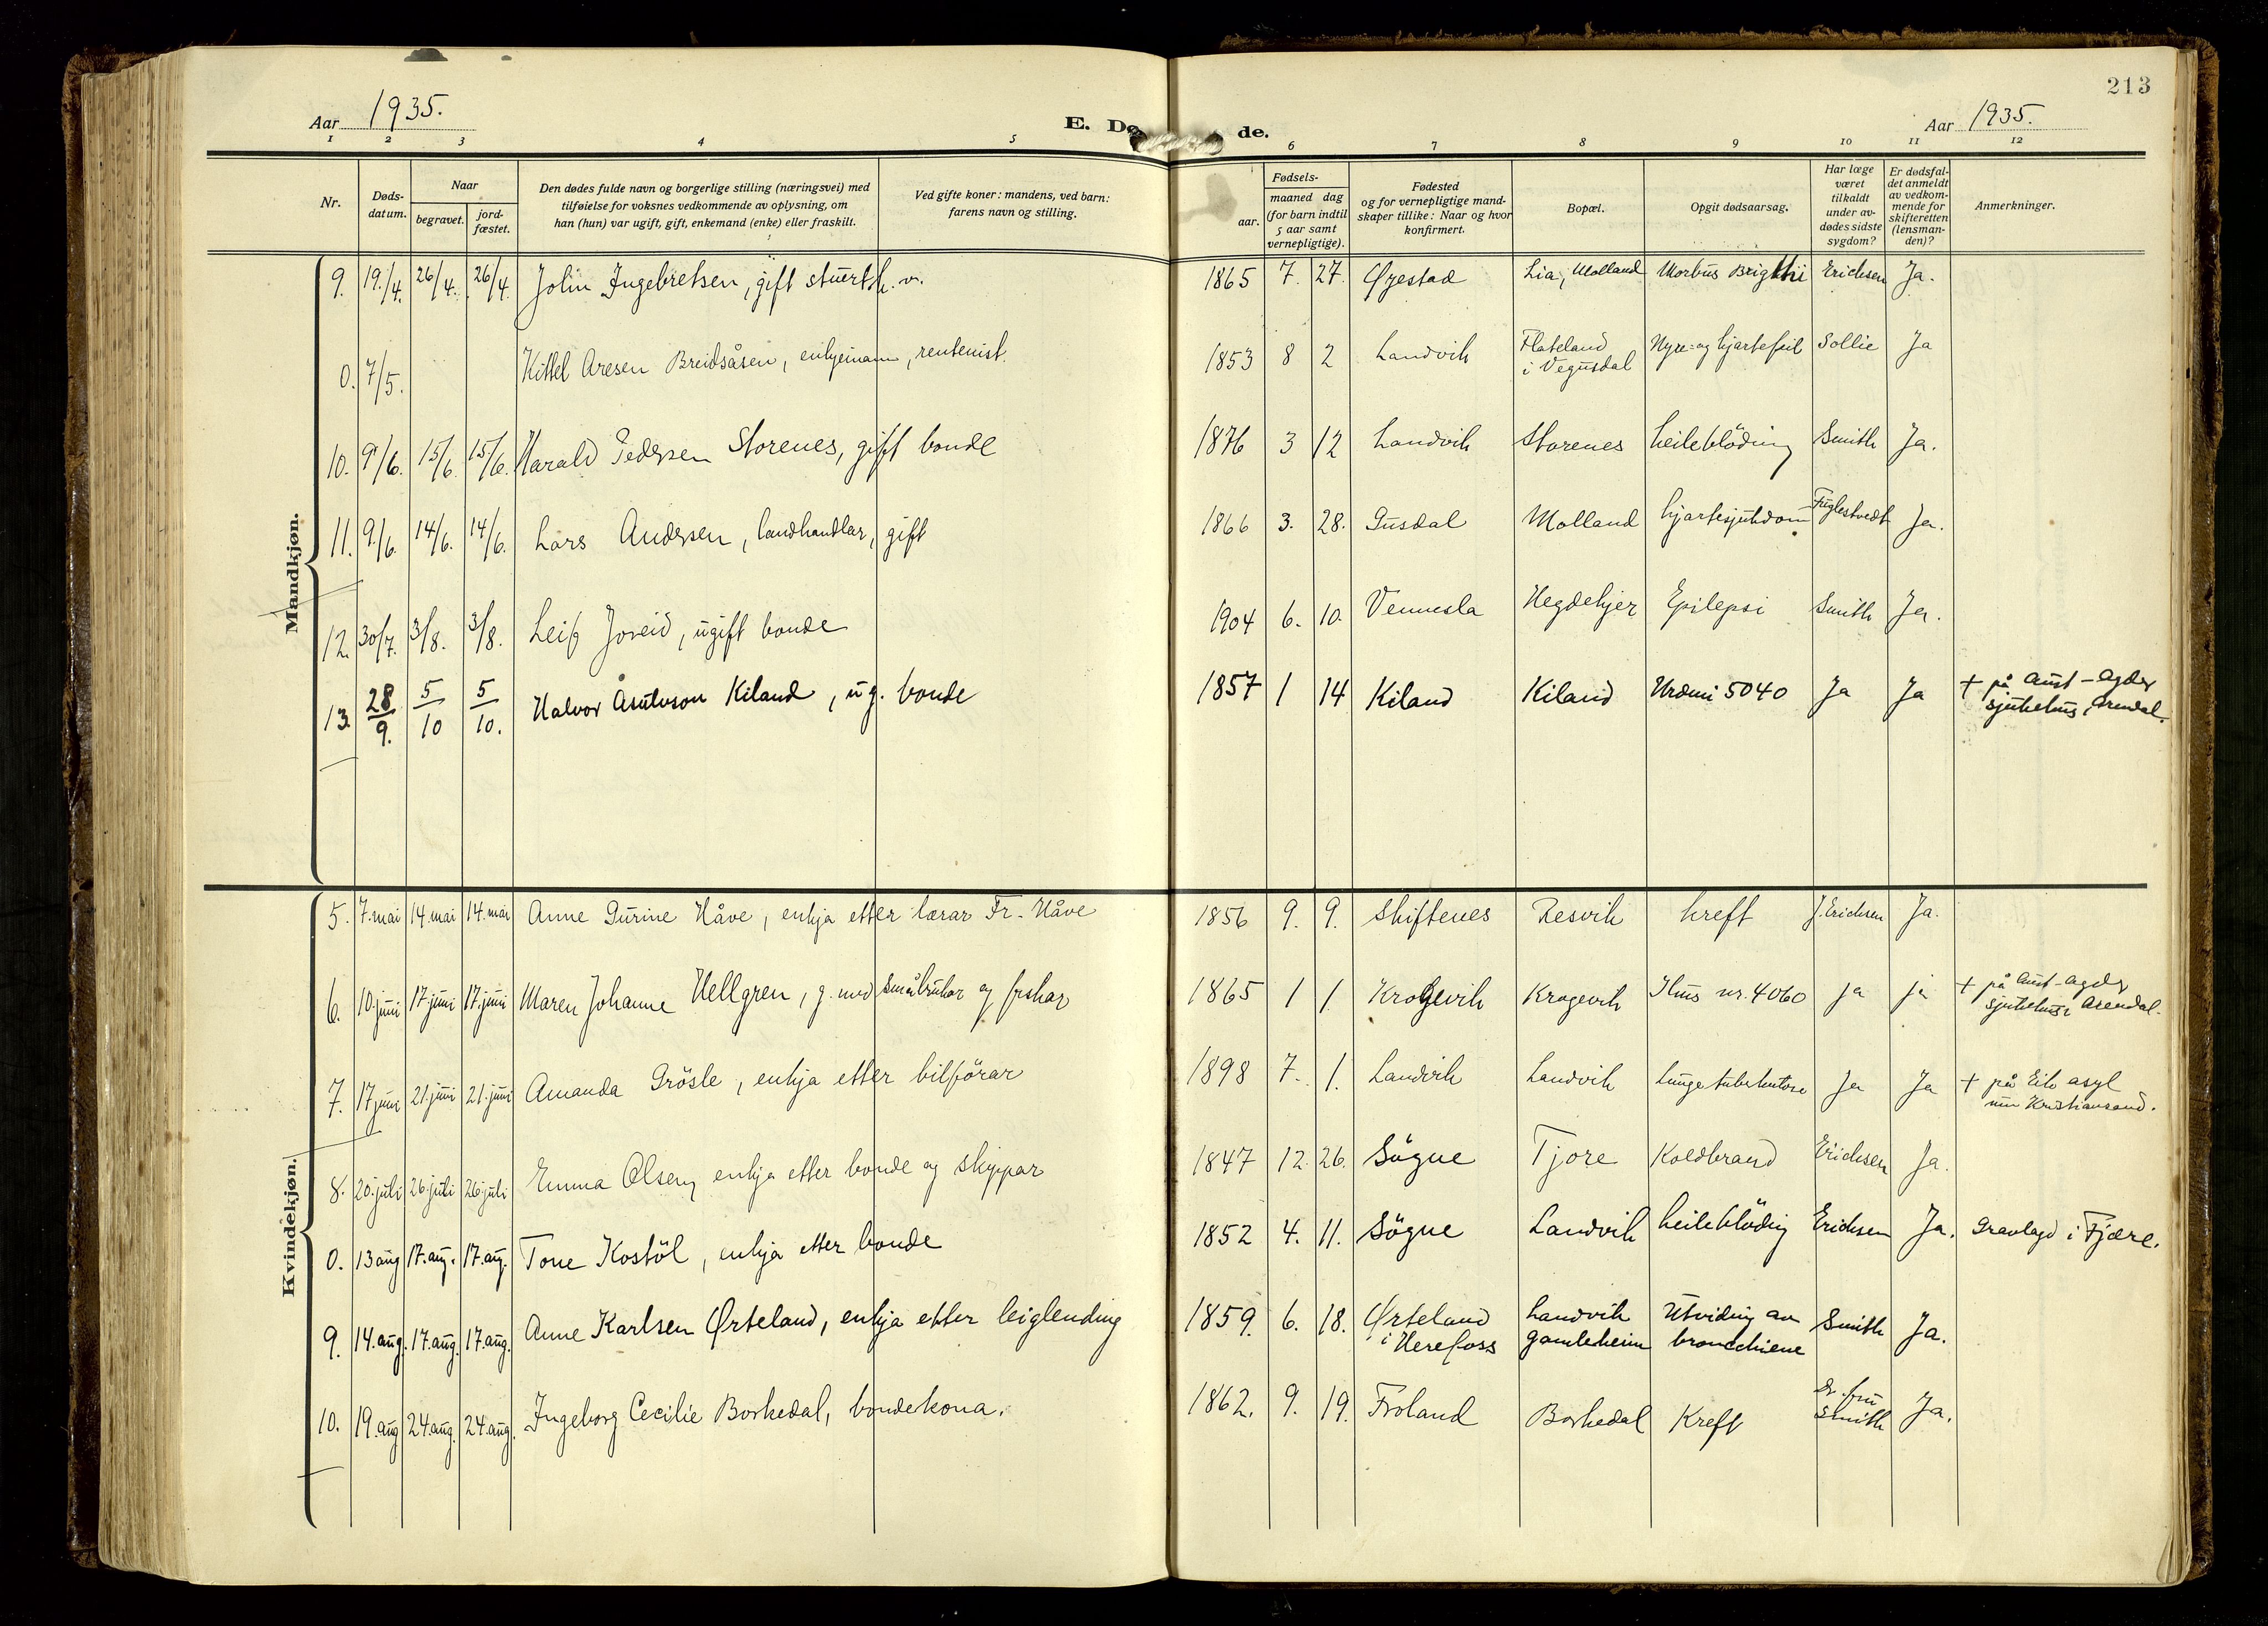 213
Aar 1935.
E. Dø de.
Aar 1935.
1 2 3 4 5 6 7 8 9 10 11 12
Nr.
Døds-
datum.
Naar
begravet.
jord-
fæstet.
Den dødes fulde navn og borgerlige stilling (næringsvei) med
tilføielse for voksnes vedkommende av oplysning, om
han (hun) var ugift, gift, enkemand (enke) eller fraskilt.
Ved gifte koner: mandens, ved barn:
farens navn og stilling.
Fødsels-
aar.
maaned dag
(for barn indtil
5 aar samt
vernepligtige).
Fødested
og for vernepligtige mand-
skaper tillike: Naar og hvor
konfirmert.
Bopæl.
Opgit dødsaarsag.
Har læge
været
tilkaldt
under av-
dødes sidste
sygdom?
Er dødsfal-
det anmeldt
av vedkom-
mende for
skifteretten
(lensman-
den)?
Anmerkninger.
Mandkjøn.
9. 19./4. 26/4. 26/4. John Ingebretsen, gift stuert h. v. 1865 7. 27. Øyestad Lia, Molland Morbus Brightii Erichsen Ja.
0. 7/5. Kittel Aresen Breidsåsen, enkjemann, rentenist. 1853 8 2 Landvik Flateland
i Vegusdal Nyre- og hjartefeil Sollie Ja
10. 9/6. 15/6. 15/6. Harald Pedersen Storenes, gift bonde 1876 3 12 Landvik Storenes heileblöding Smith Ja.
11. 9./6. 14/6. 14/6. Lars Andersen, landhandlar, gift 1866 3. 28. Gusdal Molland hjartesjukdom Fuglestvedt Ja.
12. 30/7. 3/8. 3/8. Leif Joreid, ugift bonde 1904 6. 10. Vennesla Hegdekjer Epilepsi Smith Ja.
13. 28/9. 5/10 5/10. Halvor Asulvson Kiland, ug. bonde 1857 1 14 Kiland Kiland Uremi 5040 Ja Ja † på Aust-Agder
sjukehus, Arendal.
Kvindekjøn.
5. 7. mai 14. mai 14. mai Anne Gurine Håve, enkja etter lærar Fr. Håve 1856 9. 9. Skiftenes Resvik kreft J. Erichsen Ja.
6. 10. juni 17. juni 17. juni Maren Johanne Hellgren, g. med småbrukar og fiskar 1865 1 1. Krogevik Krogevik Ileus nr. 4060 ja ja † på Aust-Agder
sjukehus i Arendal.
7. 17 juni 21. juni 21. juni Amanda Grösle, enkja etter bilförar 1898 7. 1. Landvik Landvik Lungetuberkulose Ja Ja † på Eik asyl
Kristiansand.
8. 20. juli 26. juli 26 juli Emma Olsen, enkja etter bonde og skippar 1847 12. 26. Sögne Tjore Koldbrand Erichsen Ja.
0. 13 aug 17. aug. 17. aug. Tone Kostöl, enkja etter bonde 1852 4. 11. Sögne Landvik heileblöding Erichsen Ja. Gravlagd i Fjære.
9. 14. aug. 17. aug. 17 aug. Anne Karlsen Ørteland, enkja etter leiglending 1859. 6. 18. Ørteland
i Herefoss Landvik
gamleheim Utviding av
bronchiene Smith Ja.
10. 19. aug 24. aug. 24. aug. Ingeborg Cecilie Borkedal, bondekona. 1862. 9. 19. Froland Borkedal Kreft Dr. fru
Smith Ja.